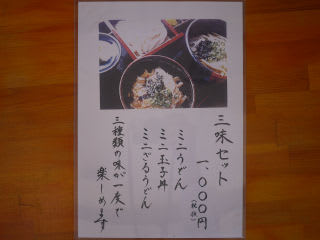 三味セット
一、000円
(税抜)
ミニうどん
ミニ玉子丼
ミニざるうどん
三種類の味が一度で
楽しめます